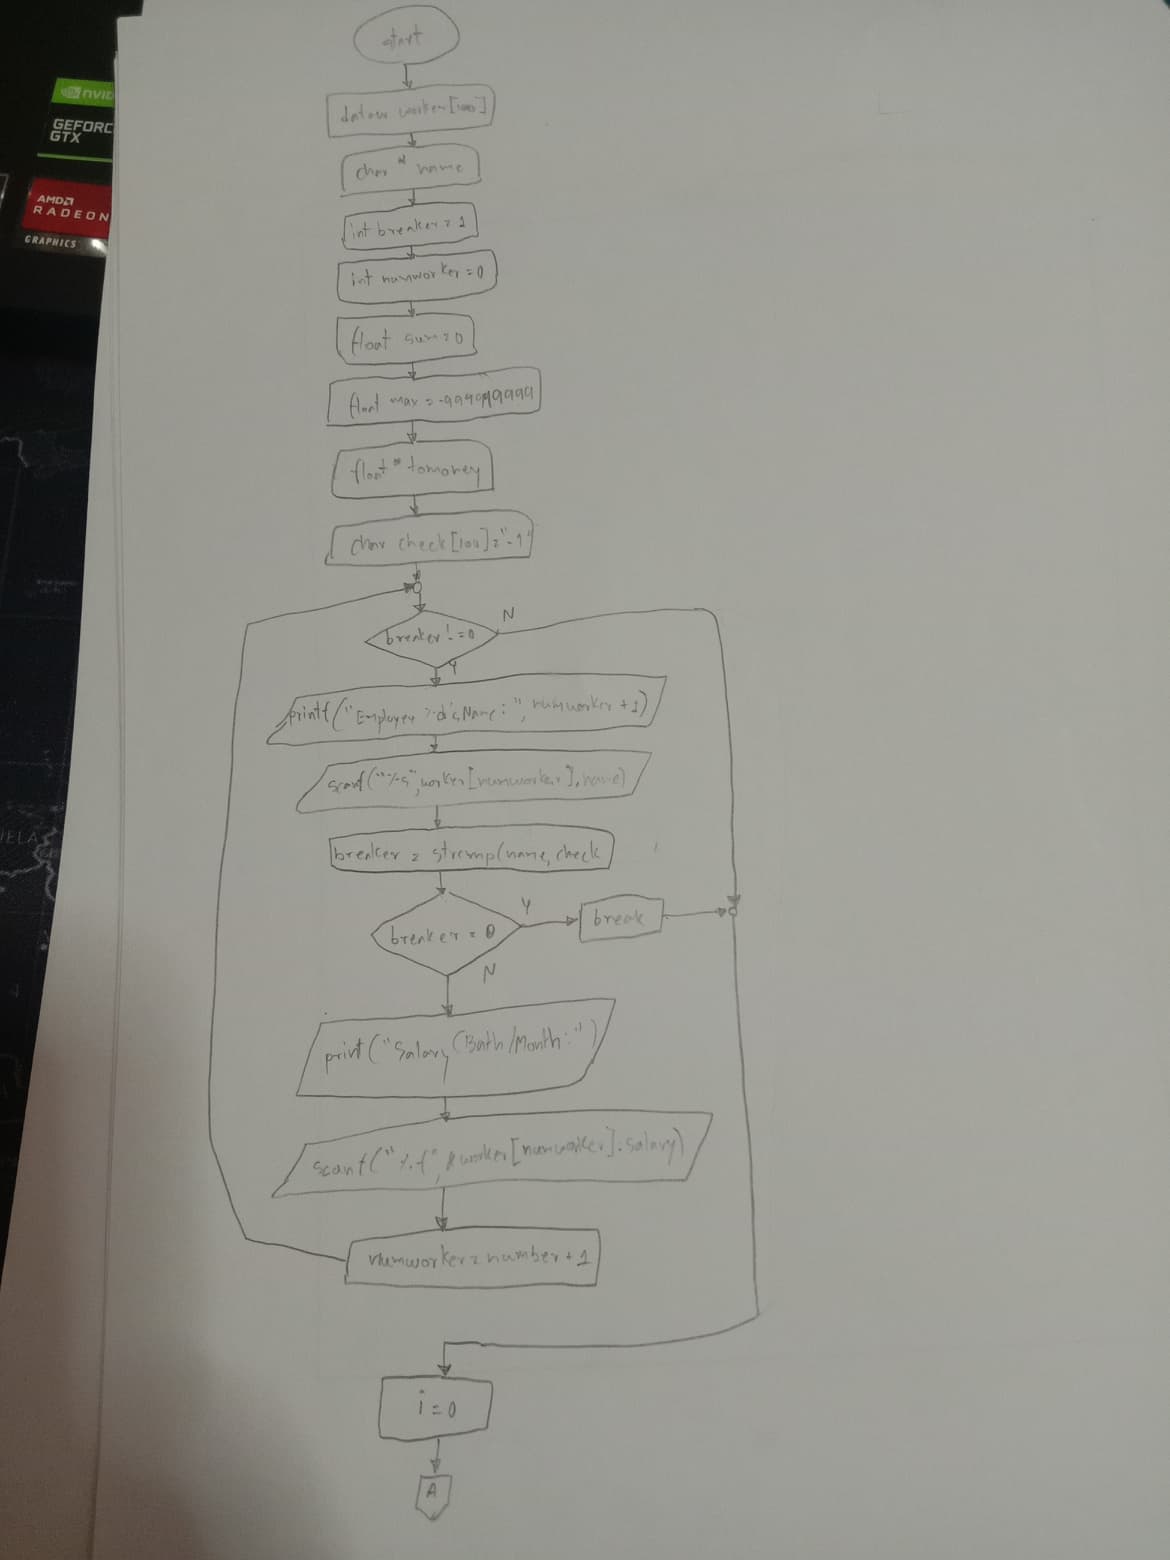 start
NVIDIA
GEFORCE
GTX
AMD
RADEON
GRAPHICS
worker[100]
char * name
int breaker = 1
int numworker = 0
float sum = 0
float max = -999999999
float * tomoney
char check[100] = "-1"
breaker != 0
N
Y
printf("Employee %d's Name: ", numworker + 1)
scanf("%s", worker[numworker].name)
breaker = strcmp(name, check
breaker = 0
Y
break
N
print("Salary (Bath/Month: ")
scanf("%f", &worker[numworker].salary)
numworker = number + 1
i = 0
A